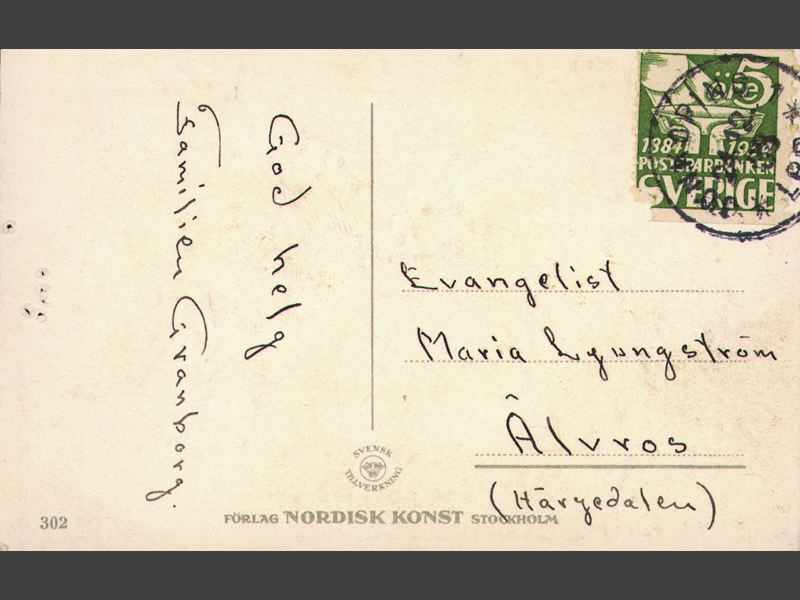 God helg
Familjen Granborg.
5
ÖRE
1884
POSTSPARBANKEN
SVERIGE
Evangelist
Maria Lyungström
Älvros
(Häryedalen)
SVENSK
TILLVERKNING
302
FÖRLAG NORDISK KONST STOCKHOLM